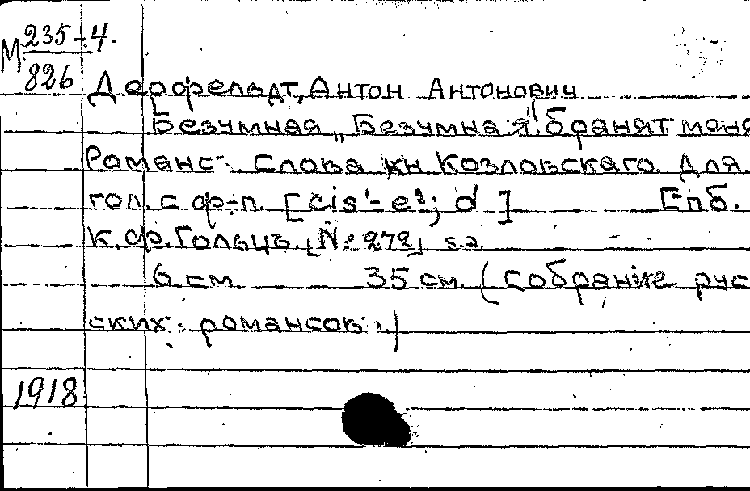 М 235-4.
826
Дерфельдт, Антон Антонович
Безумная „Безумна я" бранят меня
Романс. Слова кн Козловскаго Для
гол. с ф-п. [cis¹-e²; d] Спб.
К.Ф.Гольцъ [№ 272] s a
6 см 35 см (Собраніе рус
ских романсов.)
1918